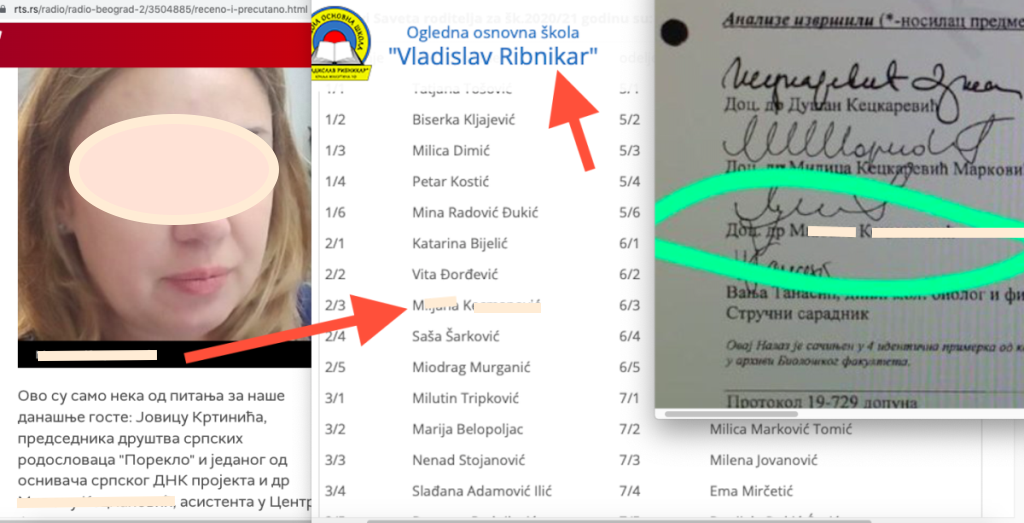 rts.rs/radio/radio-beograd-2/3504885/receno-i-precutano.html
Ово су само нека од питања за наше
данашње госте: Јовицу Кртинића,
председника друштва српских
родословаца "Порекло" и једаног од
оснивача српског ДНК пројекта и др
асистента у Центр
Saveta roditelja za šk.2020/21 godinu
Ogledna osnovna škola
"Vladislav Ribnikar"
1/2 Biserka Kljajević 5/2
1/3 Milica Dimić 5/3
1/4 Petar Kostić 5/4
1/6 Mina Radović Đukić 5/6
2/1 Katarina Bijelić 6/1
2/2 Vita Đorđević 6/2
2/3 6/3
2/4 Saša Šarković 6/4
2/5 Miodrag Murganić 6/5
3/1 Milutin Tripković 7/1
3/2 Marija Belopoljac 7/2 Milica Marković Tomić
3/3 Nenad Stojanović 7/3 Milena Jovanović
3/4 Slađana Adamović Ilić 7/4 Ema Mirčetić
Анализе извршили (*-носилац предме
Доц. др Душан Кецкаревић
Доц. др Милица Кецкаревић Маркови
Доц. др
Вања Танасић, биолог и фи
Стручни сарадник
Овај Налаз је сачињен у 4 идентична примерка од к
у архиви Биолошког факултета.
Протокол 19-729 допуна